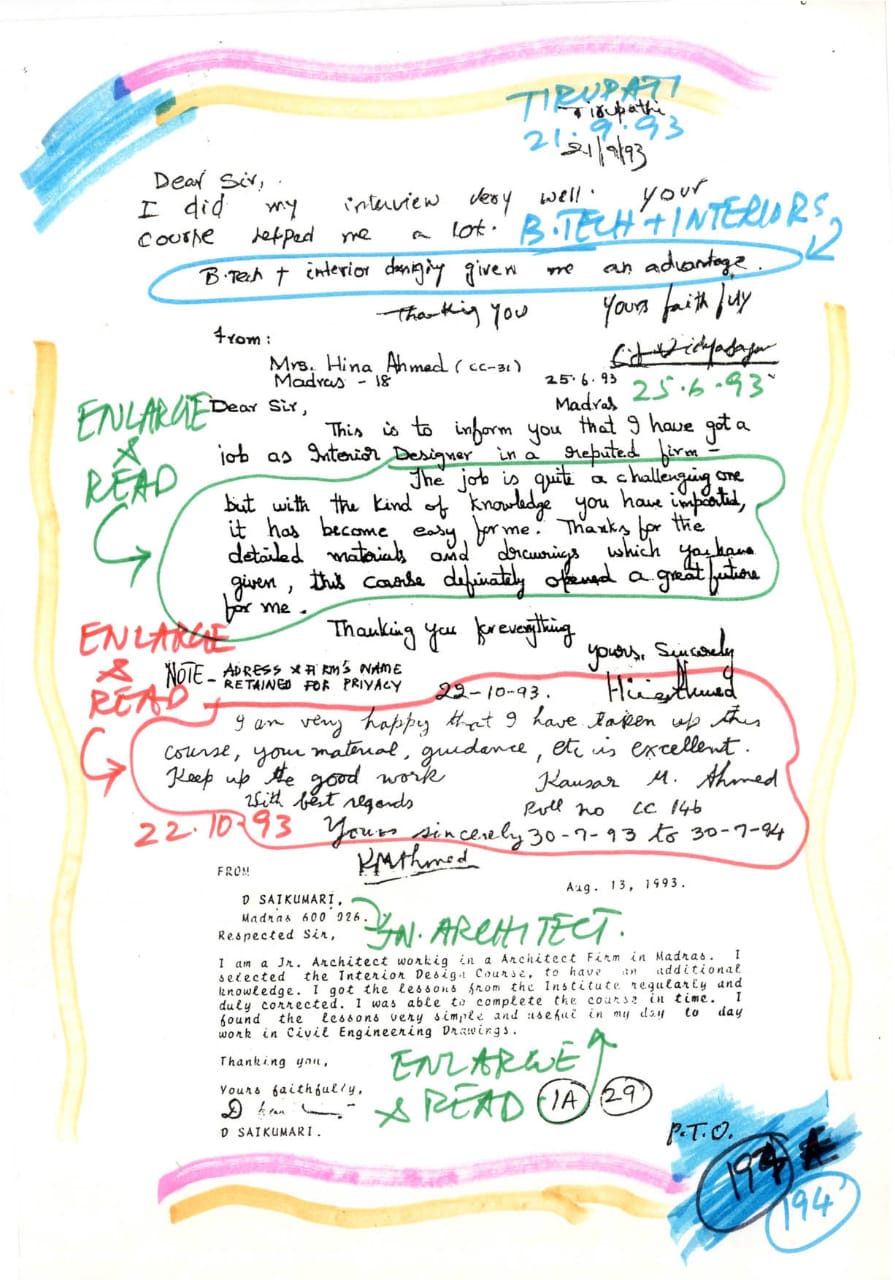 TIRUPATI
Tirupathi
21.9.93
21/9/93
Dear Sir,
I did my interview very well. Your
course helped me a lot.
B.TECH + INTERIORS
B.Tech + interior given me an advantage.
Thanking You Yours faithfully
From:
Mrs. Hina Ahmed (CC-31)
Madras - 18
25.6.93
25.6.93
Madras
ENLARGE
&
READ
Dear Sir,
This is to inform you that I have got a
job as Interior Designer in a reputed firm -
The job is quite a challenging one
but with the kind of knowledge you have imparted,
it has become easy for me. Thanks for the
detailed materials and drawings which you have
given, this course definately opened a great future
for me.
Thanking you for everything
yours, Sincerely
Hina Ahmed
ENLARGE
&
READ
NOTE - ADRESS & FIRM'S NAME
RETAINED FOR PRIVACY
22-10-93.
I am very happy that I have taken up this
course, your material, guidance, etc is excellent.
Keep up the good work
Kausar M. Ahmed
With best regards
Roll no CC 146
22.10.93
Yours sincerely 30-7-93 to 30-7-94
KMAhmed
FROM
Aug. 13, 1993.
D SAIKUMARI,
Madras 600 026.
JN. ARCHITECT.
Respected Sir,
I am a Jr. Architect workig in a Architect Firm in Madras. I
selected the Interior Design Course, to have an additional
knowledge. I got the lessons from the Institute regularly and
duly corrected. I was able to complete the course in time. I
found the lessons very simple and useful in my day to day
work in Civil Engineering Drawings.
Thanking you,
ENLARGE
& READ
1A 29
Yours faithfully,
D SAIKUMARI.
P.T.O.
194 A
194